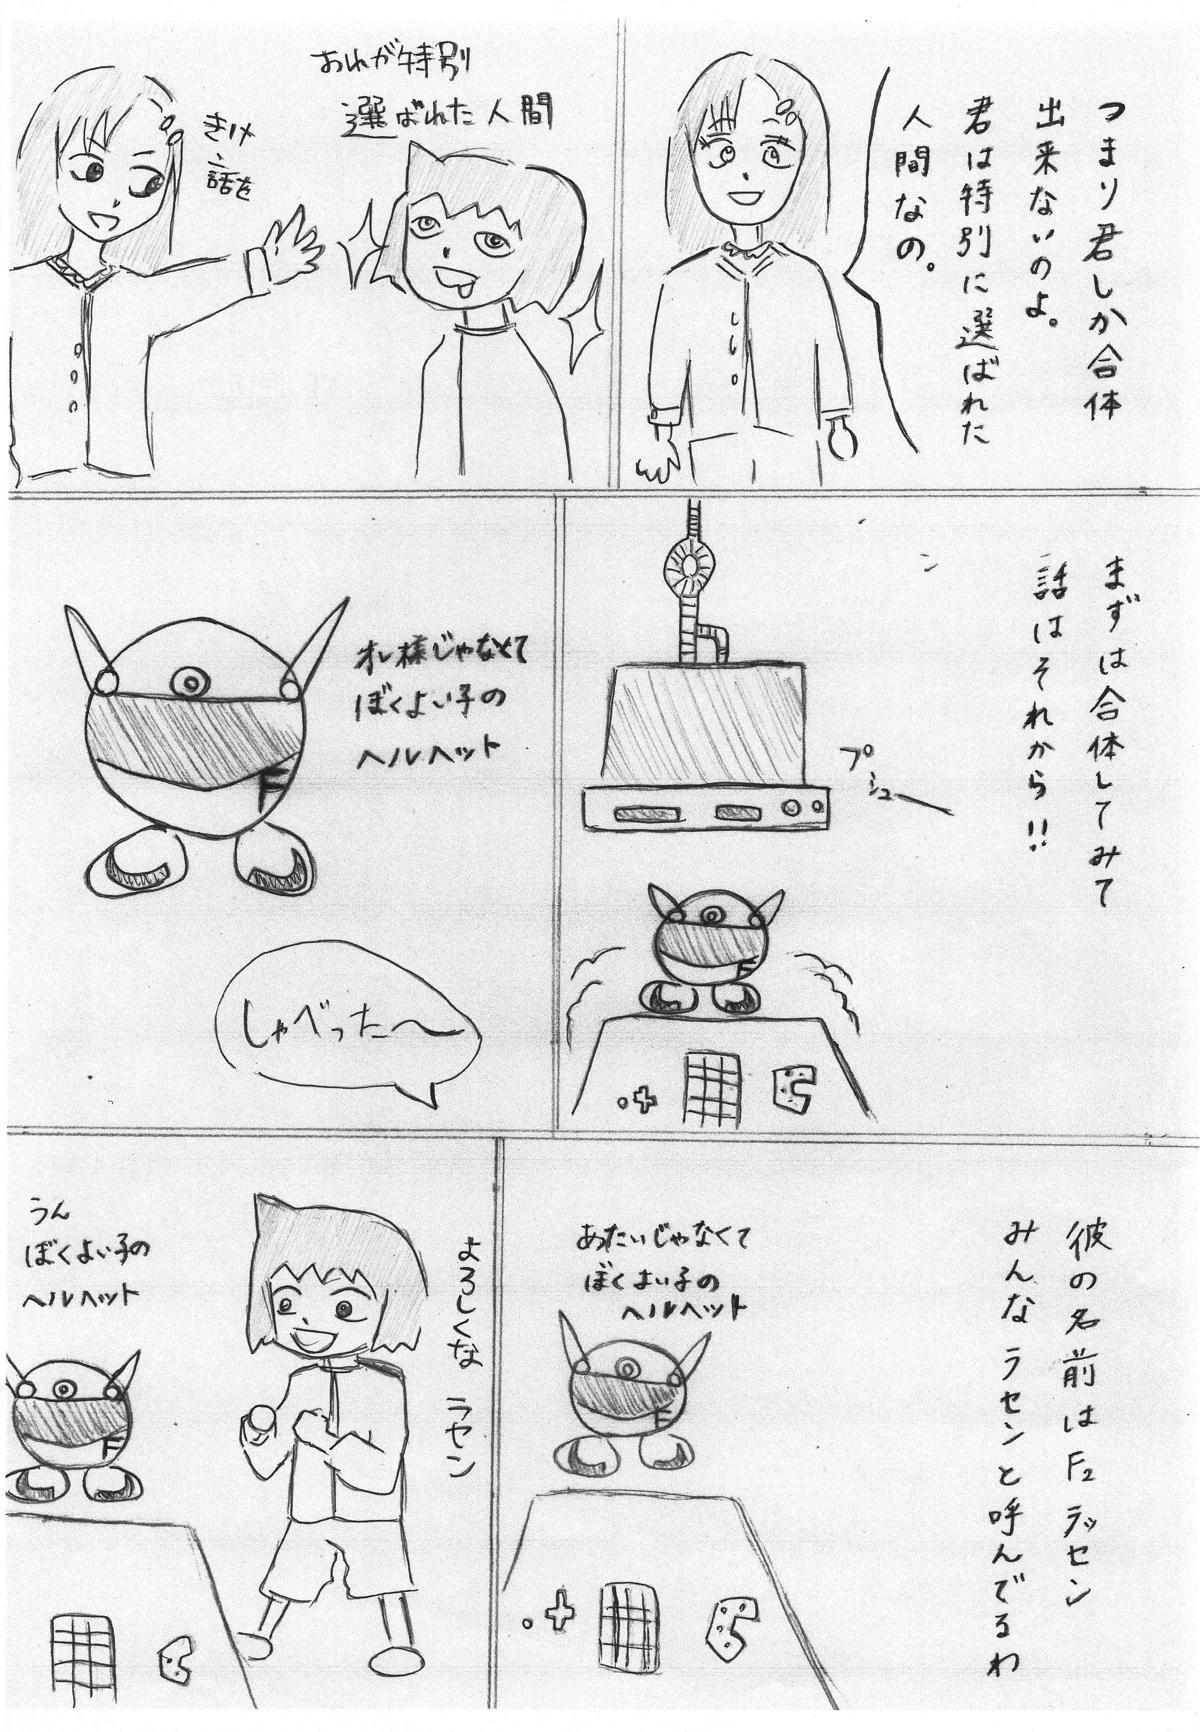 つまり君しか合体
出来ないのよ。
君は特別に選ばれた
人間なの。
おれが特別
選ばれた人間
きけ
話を
まずは合体してみて
話はそれから!!
プシュー
オレ様じゃなくて
ぼくよい子の
ヘルヘット
しゃべった〜
F
彼の名前はF2ラッセン
みんなラセンと呼んでるわ
あたいじゃなくて
ぼくよい子の
ヘルヘット
F
よろしくな ラセン
うん
ぼくよい子の
ヘルヘット
F